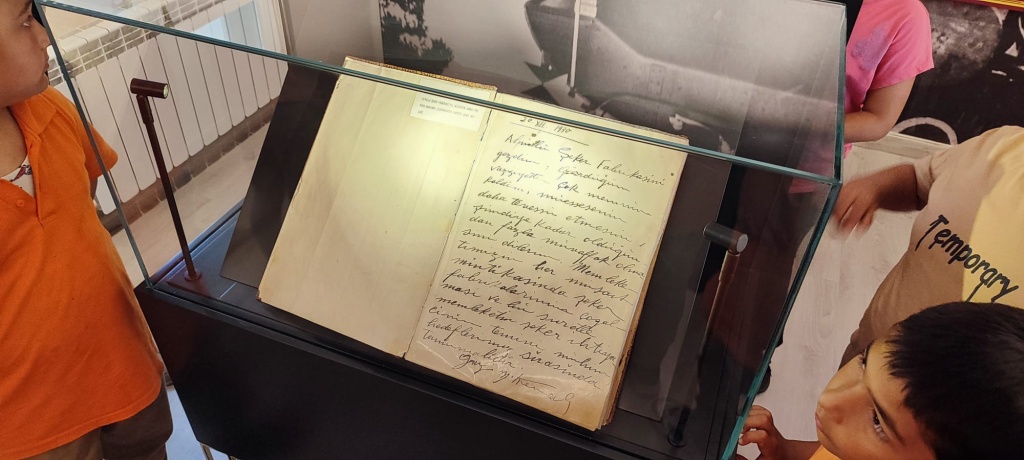 20. XII. 1930
Şeker Fabrikasını
gezdim. Gördüğüm
vaziyetten çok memnun
kaldım; müessesenin
daha tevessü etmesini,
şimdiye kadar olduğun
dan fazla muvaffak olma
sını dilerim. Memleke
timizin her müsait
mıntıkasında şeker
fabrikalarının çoğal
ması ve bu suretle
memleketin şeker ihtiya
cının temini, mühim
hedeflerimiz sırasında
Gazi M. Kemal
Temporary